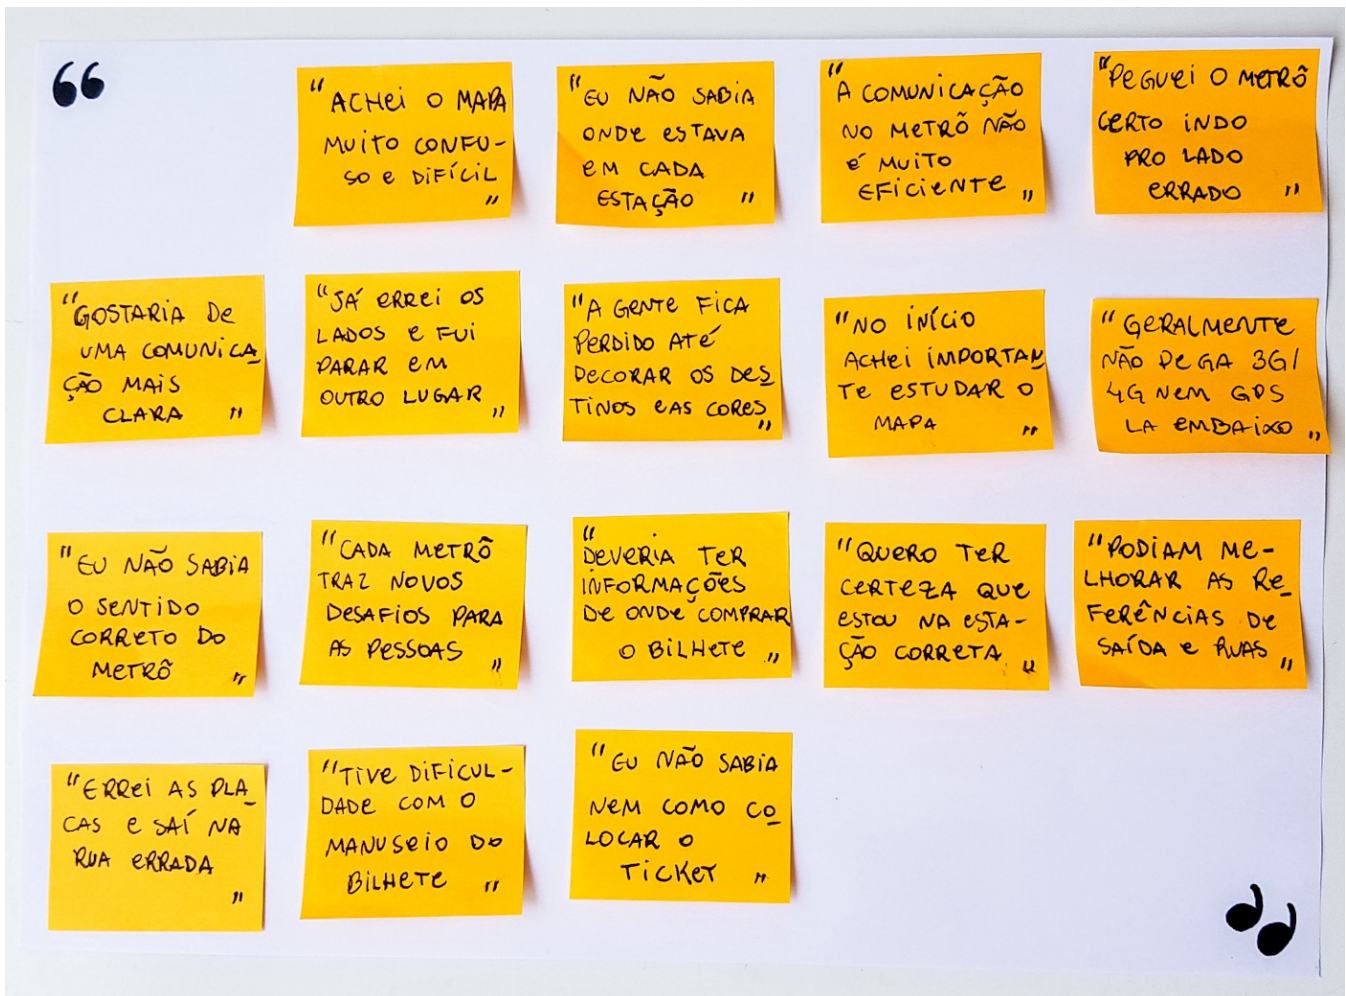 “
“ACHEI O MAPA
MUITO CONFU-
SO E DIFÍCIL
”
“EU NÃO SABIA
ONDE ESTAVA
EM CADA
ESTAÇÃO ”
“A COMUNICAÇÃO
NO METRÔ NÃO
É MUITO
EFICIENTE ”
“PEGUEI O METRÔ
CERTO INDO
PRO LADO
ERRADO ”
“GOSTARIA DE
UMA COMUNICA
ÇÃO MAIS
CLARA ”
“JÁ ERREI OS
LADOS E FUI
PARAR EM
OUTRO LUGAR ”
“A GENTE FICA
PERDIDO ATÉ
DECORAR OS DES
TINOS E AS CORES
”
“NO INÍCIO
ACHEI IMPORTAN
TE ESTUDAR O
MAPA ”
“GERALMENTE
NÃO PEGA 3G/
4G NEM GPS
LA EMBAIXO ”
“EU NÃO SABIA
O SENTIDO
CORRETO DO
METRÔ ”
“CADA METRÔ
TRAZ NOVOS
DESAFIOS PARA
AS PESSOAS ”
“
DEVERIA TER
INFORMAÇÕES
DE ONDE COMPRAR
O BILHETE ”
“QUERO TER
CERTEZA QUE
ESTOU NA ESTA-
ÇÃO CORRETA ”
“PODIAM ME-
LHORAR AS RE
FERÊNCIAS DE
SAÍDA E RUAS ”
“ERREI AS PLA
CAS E SAÍ NA
RUA ERRADA
”
“TIVE DIFICUL-
DADE COM O
MANUSEIO DO
BILHETE ”
“EU NÃO SABIA
NEM COMO CO
LOCAR O
TICKET ”
”